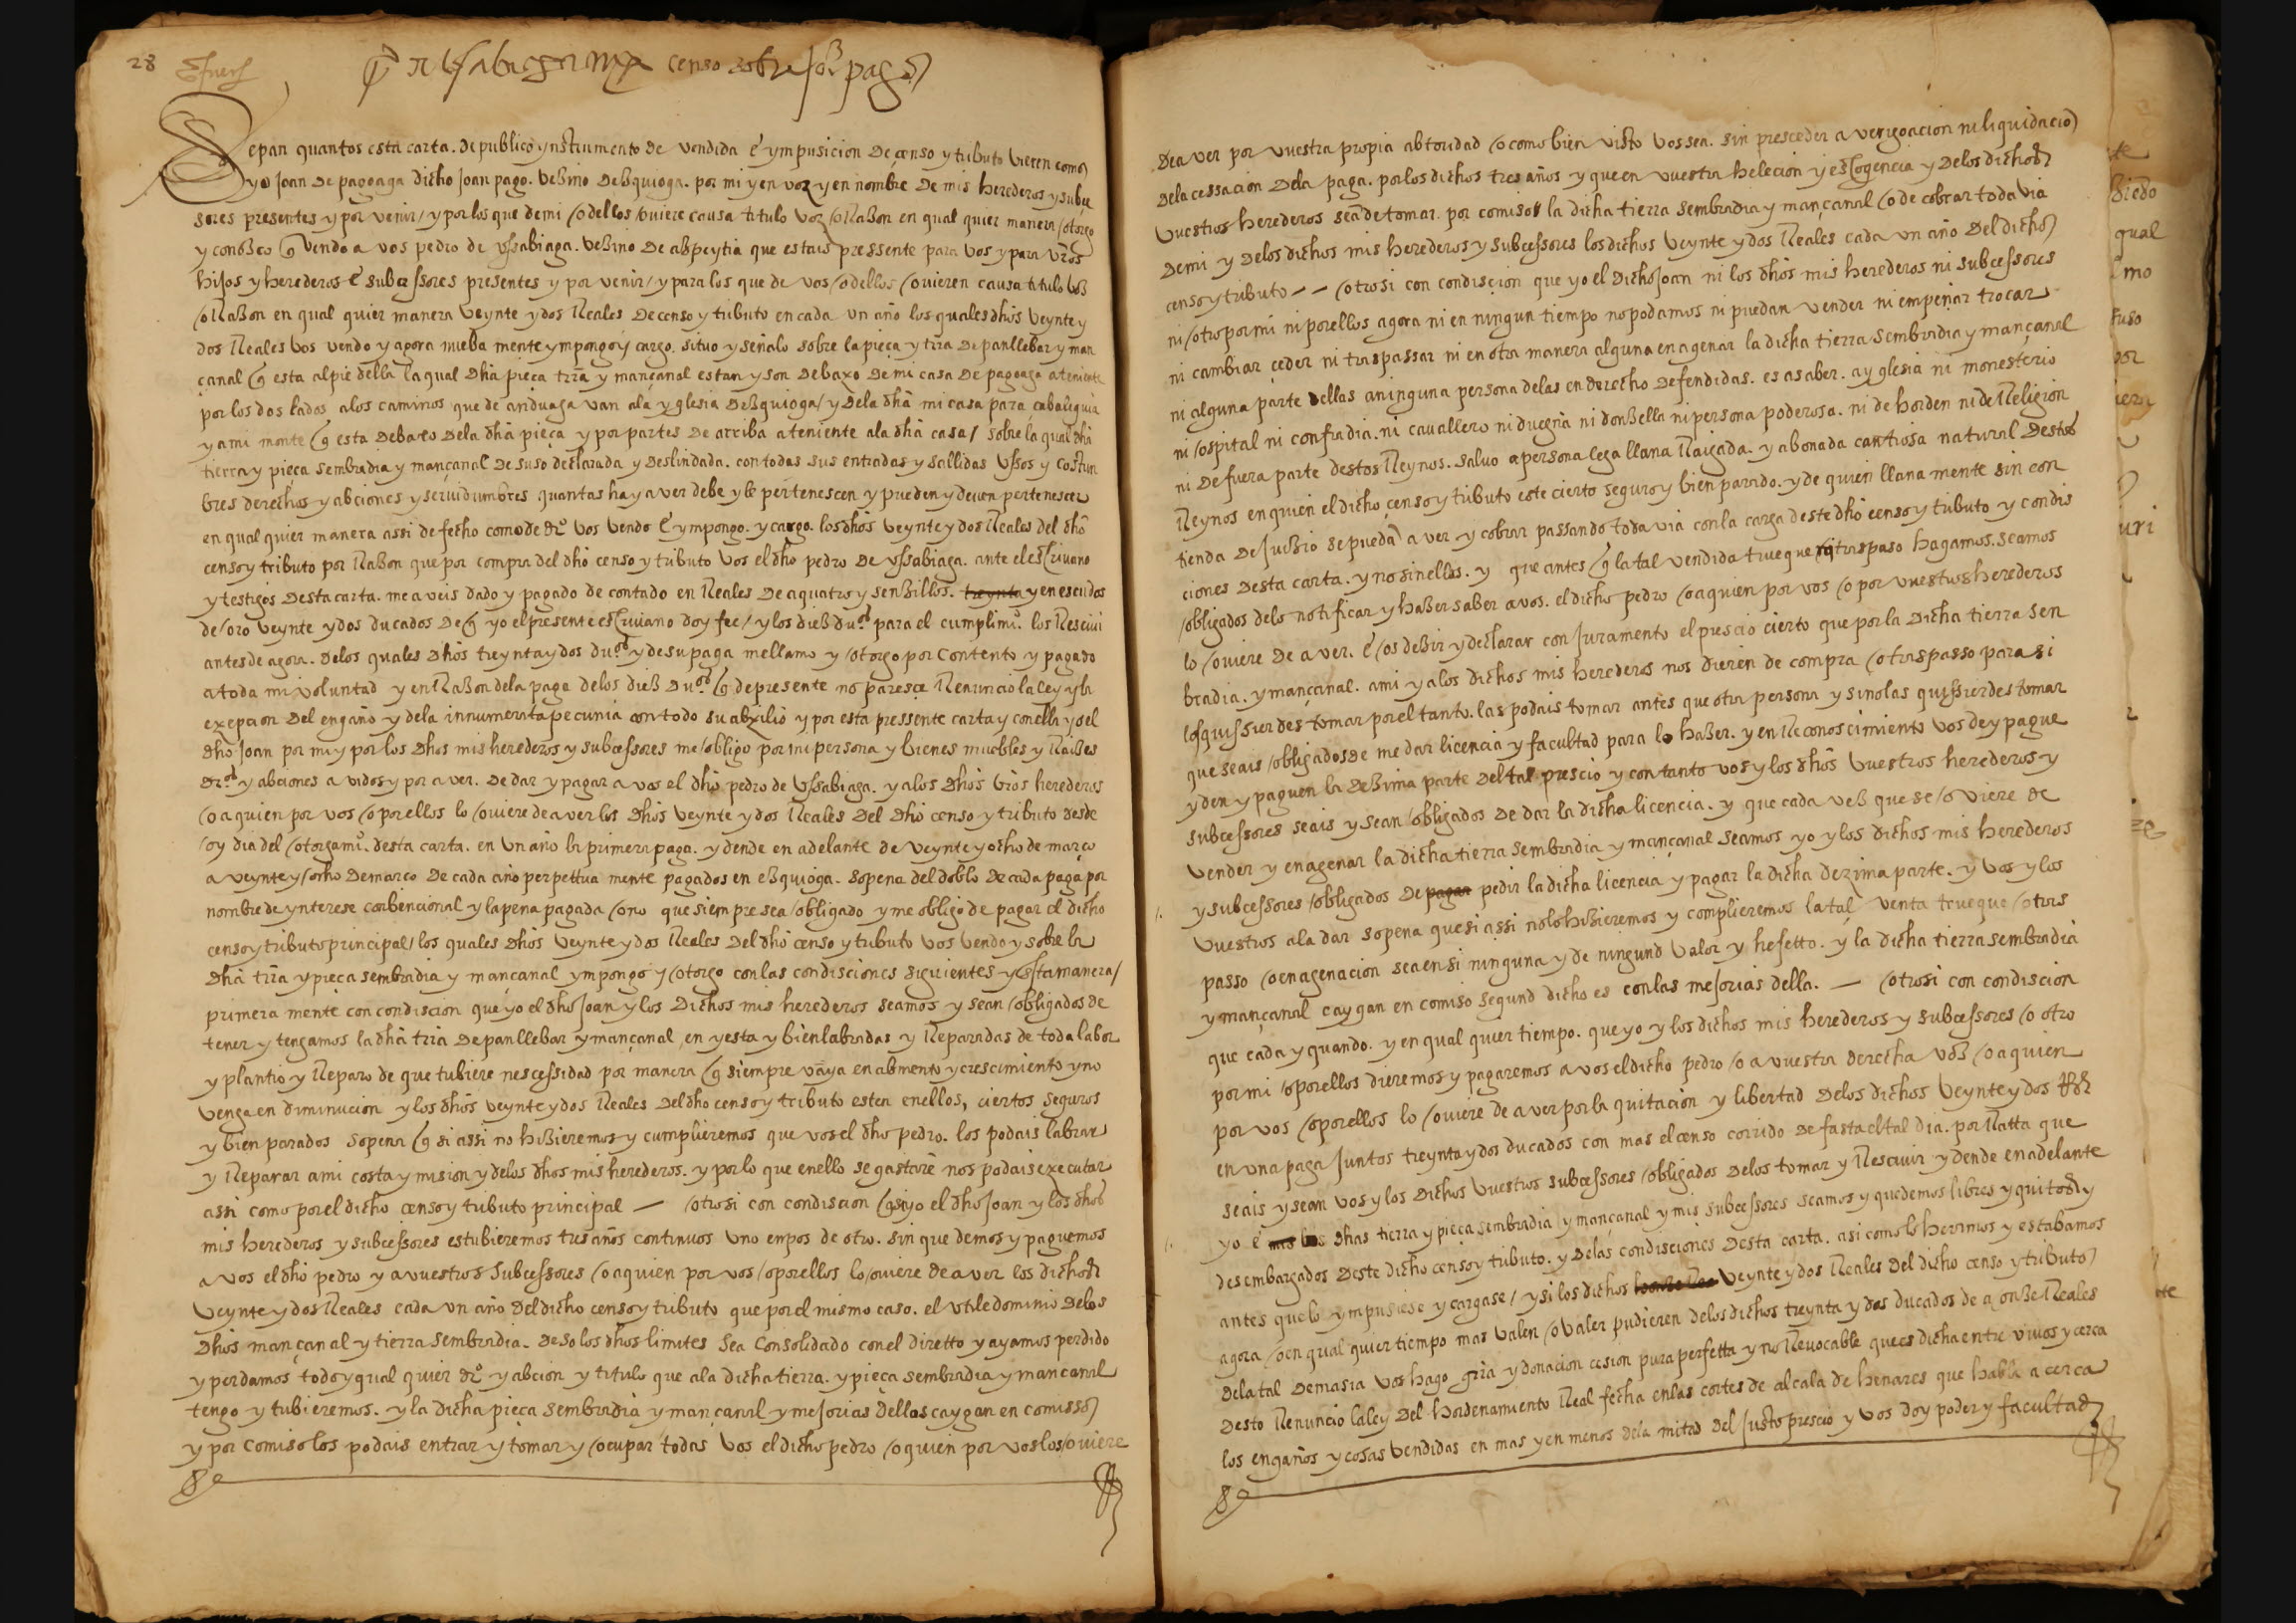 28
censo sobre Joā pago
Sepan quantos esta carta. de publico ynstrumento de vendida e ymposicion de çenso y tributo vieren como
yo Joan de pagoaga dicho Joan pago. vezino de ezquioga. por mi y en voz y en nombre de mis herederos y subçe
sores presentes y por venir / y por los que de mi / o dellos / oviere causa titulo voz / o Razon en qual quier manera / otorgo
y conozco q̄ vendo a vos pedro de vssabiaga. vezino de azpeytia que estais pressente para vos y para vr̄os
hijos y herederos e subcessores presentes y por venir / y para los que de vos / o dellos / ovieren causa titulo voz
/ o Razon en qual quier manera veynte y dos Reales de censo y tributo en cada un año los quales dhōs veynte y
dos Reales vos vendo y agora nueba mente ympongo y cargo. situo y señalo sobre la pieça y trr̄a de pan llebar y man
çanal q̄ esta al pie della la qual dhā pieça trr̄a y mançanal estan y son debaxo de mi casa de pagoaga ateniente
por los dos lados a los caminos que de anduaga van a la yglesia de ezquioga / y de la dhā mi casa para cabaleguia
y a mi monte q̄ esta debaxo de la dhā pieça y por partes de arriba ateniente a la dhā casa / sobre la qual dhā
tierra y pieça sembradia y mançanal de suso declarada y deslindada. con todas sus entradas y sallidas vssos y costun
bres derechos y abciones y seruidumbres quantas hay aver debe y le pertenescen y pueden y deven pertenescer
en qual quier manera assi de fecho como de dr̄o vos vendo e ympongo. y cargo. los dhōs veynte y dos Reales del dhō
censo y tributo por Razon que por compra del dhō censo y tributo vos el dhō pedro de vssabiaga. ante el escrivano
y testigos desta carta. me aveis dado y pagado de contado en Reales de a quatro y senzillos. treynta y en escudos
de / oro veynte y dos ducados de q̄ yo el presente escrivano doy fee / y los diez dūos para el cumplimiº. los Resciui
antes de agora. de los quales dhōs treynta y dos dūos y de su paga me llamo y / otorgo por contento y pagado
a toda mi voluntad y en Razon de la paga de los diez dūos q̄ de presente no paresce Renuncio la ley y la
exepcion del engaño y de la innumerata pecunia con todo su abxilio y por esta pressente carta y con ella yo el
dhō Joan por mi y por los dhōs mis herederos y subcessores me / obligo por mi persona y bienes muebles y Raizes
drōs y abciones avidos y por aver. de dar y pagar a vos el dhō pedro de vssabiaga. y a los dhōs vr̄os herederos
/ o a quien por vos / o por ellos lo / oviere de aver los dhōs veynte y dos Reales del dhō censo y tributo desde
/ oy dia del / otorgamiº. desta carta. en un año la primera paga. y dende en adelante de veynte y ocho de março
a veynte y / ocho de março de cada año perpettua mente pagados en ezquioga. so pena del doblo de cada paga por
nombre de ynterese conbencional y la pena pagada / o no que siempre sea / obligado y me obligo de pagar el dicho
censo y tributo principal / los quales dhōs veynte y dos Reales del dhō censo y tributo vos vendo y sobre la
dhā trr̄a y pieça sembradia y mançanal ympongo y / otorgo con las condisciones siguientes y desta manera /
primera mente con condiscion que yo el dhō Joan y los dichos mis herederos seamos y sean / obligados de
tener y tengamos la dhā trr̄a de pan llebar y mançanal en yesta y bien labradas y Reparadas de toda labor
y plantio y Reparo de que tubiere nescessidad por manera q̄ siempre vaya en abmento y crescimiento y no
venga en diminucion y los dhōs veynte y dos Reales del dhō censo y tributo esten en ellos, ciertos seguros
y bien parados so pena q̄ si assi no hizieremos y cumplieremos que vos el dhō pedro. los podais labrar
y Reparar a mi costa y mision y de los dhōs mis herederos. y por lo que en ello se gastare nos podais executar
assi como por el dicho censo y tributo principal — / otrosi con condiscion q̄ si yo el dhō Joan y los dhōs
mis herederos y subcessores estubieremos tres años continuos uno en pos de otro. sin que demos y paguemos
a vos el dhō pedro y a vuestros subcessores / o a quien por vos / o por ellos lo / oviere de aver los dichos
veynte y dos Reales cada un año del dicho censo y tributo que por el mismo caso. el vtile dominio de los
dhōs mançanal y tierra sembradia. de so los dhōs limites sea consolidado con el diretto y ayamos perdido
y perdamos todo y qual quier dr̄o y abcion y titulo que a la dicha tierra. y pieça sembradia y mançanal
tengo y tubieremos. y la dicha pieça sembradia y mançanal y mejorias dellas caygan en comisso
y por comiso los podais entrar y tomar y / ocupar todas vos el dicho pedro / o quien por vos los / oviere
de aver por vuestra propia abtoridad / o como bien visto vos sea. sin presceder averigoacion ni liquidacio
de la cessacion de la paga. por los dichos tres años y que en vuestra helecion y escogencia y de los dichos
vuestros herederos sea de tomar. por comiso la dicha tierra sembradia y mançanal / o de cobrar toda via
de mi y de los dichos mis herederos y subcessores los dichos veynte y dos Reales cada un año del dicho
censo y tributo — — / otrosi con condiscion que yo el dicho Joan ni los dhōs mis herederos ni subcessores
ni / otro por mi ni por ellos agora ni en ningun tiempo no podamos ni puedan vender ni empeñar trocar
ni cambiar çeder ni traspassar ni en otra manera alguna enagenar la dicha tierra sembradia y mançanal
ni alguna parte dellas a ninguna persona de las en derecho defendidas. es a saber. a yglesia ni monesterio
ni / ospital ni confradia. ni cauallero ni duegna ni donzella ni persona poderosa. ni de horden ni de Religion
ni de fuera parte destos Reynos. salvo a persona lega llana Raigada. y abonada cantiosa natural destos
Reynos en quien el dicho censo y tributo este cierto seguro y bien parado. y de quien llana mente sin con
tienda de juizio se pueda aver y cobrar passando toda via con la carga deste dhō censo y tributo y condis
ciones desta carta. y no sin ellos. y que antes q̄ la tal vendida trueque traspaso hagamos. seamos
/ obligados de lo notificar y hazer saber a vos. el dicho pedro / o a quien por vos / o por vuestros herederos
lo / oviere de aver. e / os dezir y declarar con juramento el prescio cierto que por la dicha tierra sen
bradia. y mançanal. a mi y a los dichos mis herederos nos dieren de compra / o traspasso para si
los quissierdes tomar por el tanto. las podais tomar antes que otra persona y si no las quissierdes tomar
que seais / obligados de me dar licencia y facultad para lo hazer. y en Reconoscimiento vos de y pague
y den y paguen la dezima parte del tal prescio y con tanto vos y los dhōs vuestros herederos y
subcessores seais y sean / obligados de dar la dicha licencia. y que cada vez que se / oviere de
vender y enagenar la dicha tierra sembradia y mançanal seamos yo y los dichos mis herederos
y subcessores / obligados de pagar pedir la dicha licencia y pagar la dicha dezima parte. y vos y los
vuestros a la dar so pena que si assi no lo hizieremos y complieremos la tal venta trueque / o tras
passo / o enagenacion sea en si ninguna y de ningund valor y hefetto. y la dicha tierra sembradia
y mançanal caygan en comiso segund dicho es con las mejorias della. — / otrosi con condiscion
que cada y quando. y en qual quier tiempo. que yo y los dichos mis herederos y subcessores / o otro
por mi / o por ellos dieremos y pagaremos a vos el dicho pedro / o a vuestra derecha voz / o a quien
por vos / o por ellos lo / oviere de aver por la quitacion y libertad de los dichos veynte y dos Rs
en una paga juntos treynta y dos ducados con mas el censo corrido de fasta el tal dia. por Ratta que
seais y sean vos y los dichos vuestros subcessores / obligados de los tomar y Resciuir y dende en adelante
yo e mis las dhas tierra y pieça sembradia y mançanal y mis subcessores seamos y quedemos libres y quitos y
desembargados deste dicho censo y tributo. y de las condisciones desta carta. asi como lo heramos y estabamos
antes que lo ympusiese y cargase / y si los dichos veynte y dos Reales del dicho censo y tributo
agora / o en qual quier tiempo mas valen / o valer pudieren de los dichos treynta y dos ducados de a onze Reales
de la tal demasia vos hago grā y donacion cesion pura perfetta y no Revocable que es dicha entre vivos y cerca
desto Renuncio la ley del hordenamiento Real fecha en las cortes de alcala de henares que habla a cerca
los engaños y cosas vendidas en mas y en menos de la mitad del justo prescio y vos doy poder y facultad